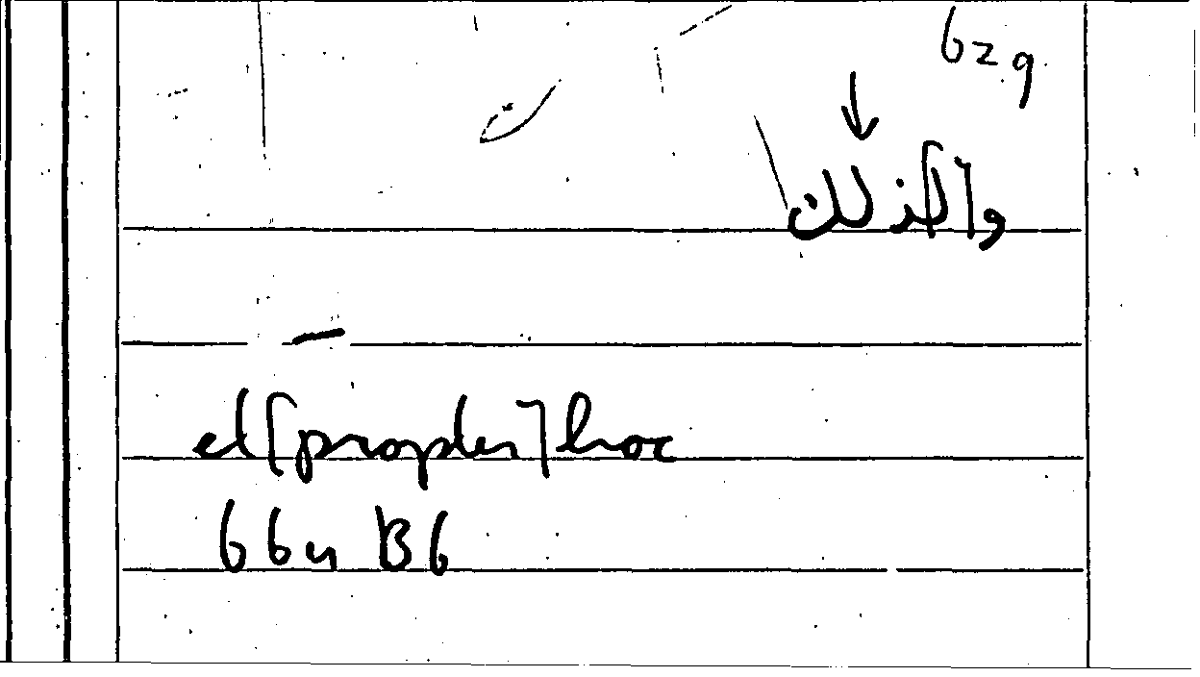 629
↓
و[ل]ذلك
—
et [propter] hoc
664 B6